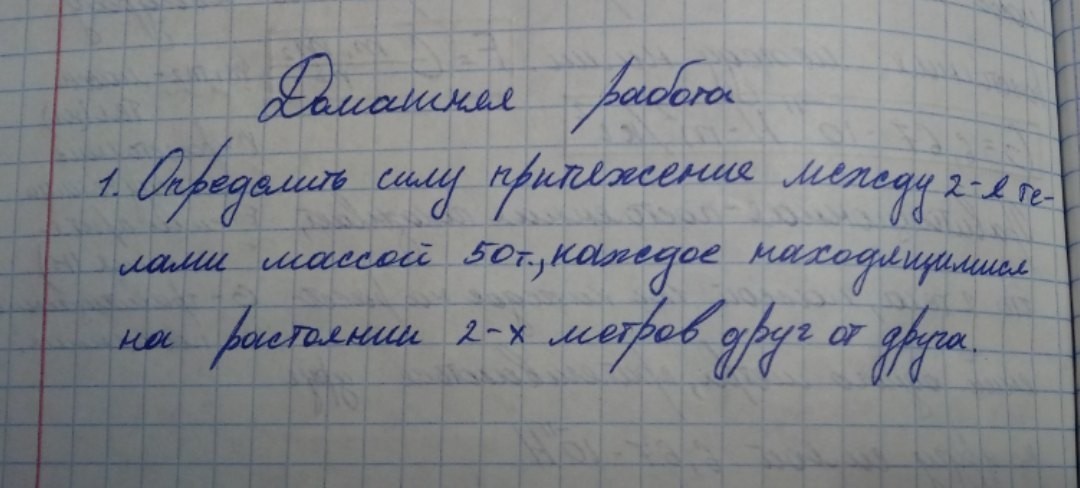 Домашняя работа
1. Определить силу притяжение между 2-я те-
лами массой 50т., каждое находящимися
на растоянии 2-х метров друг от друга.